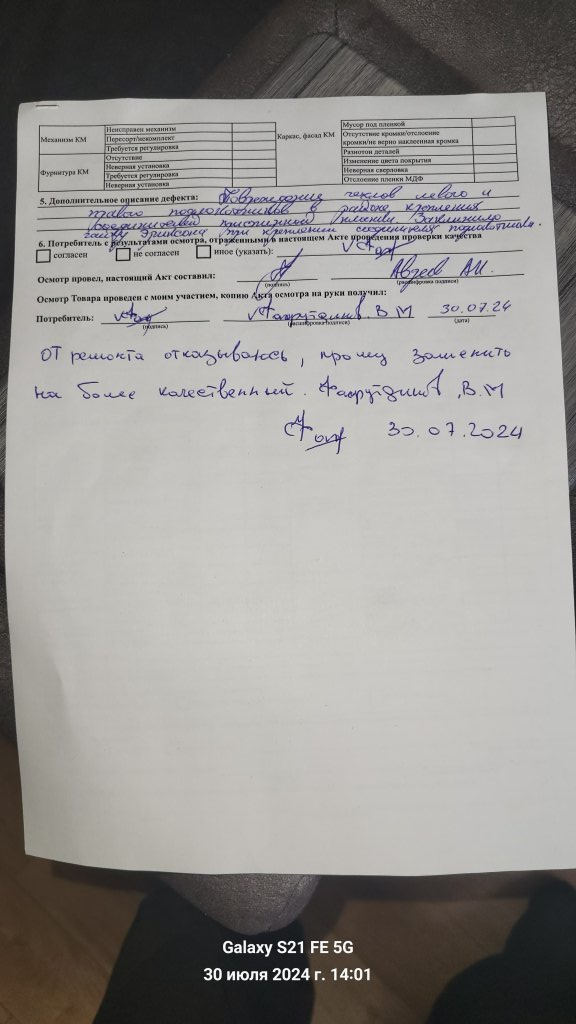 Механизм КМ
Неисправен механизм
Пересорт/некомплект
Требуется регулировка
Фурнитура КМ
Отсутствие
Неверная установка
Требуется регулировка
Неверная установка
Каркас, фасад КМ
Мусор под пленкой
Отсутствие кромки/отслоение
кромки/не верно наклеенная кромка
Разнотон деталей
Изменение цвета покрытия
Неверная сверловка
Отслоение пленки МДФ
5. Дополнительное описание дефекта: Повреждение чехлов левого и
правого подлокотников в районе крепления
соединителей приспинной
гайку Эриксона при креплении соединителя подлокотника.
6. Потребитель с результатами осмотра, отраженными в настоящем Акте проведения проверки качества
согласен не согласен иное (указать):
Осмотр провел, настоящий Акт составил:
(подпись) (расшифровка подписи)
Осмотр Товара проведен с моим участием, копию Акта осмотра на руки получил:
Потребитель: В.М 30.07.24
(подпись) (расшифровка подписи) (дата)
От ремонта отказываюсь, прошу заменить
на более качественный. В.М
30.07.2024
Galaxy S21 FE 5G
30 июля 2024 г. 14:01